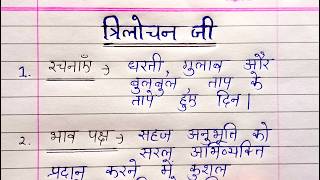 त्रिलोचन जी
1. रचनाएँ → धरती, गुलाब और
बुलबुल, ताप के
ताये हुए दिन।
2. भाव पक्ष → सहज अनुभूति को
सरल अभिव्यक्ति
प्रदान करने में कुशल